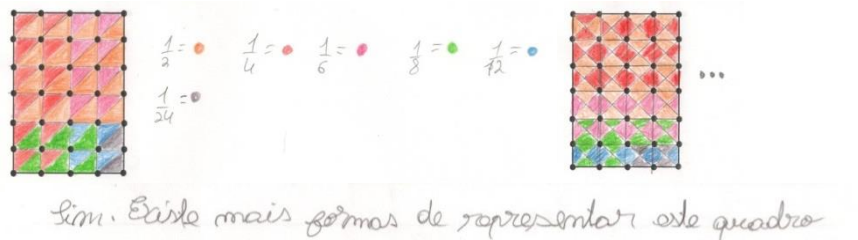 1/2 = 1/4 = 1/6 = 1/8 = 1/12 =
1/24 =
...
Sim. Existe mais formas de representar este quadro